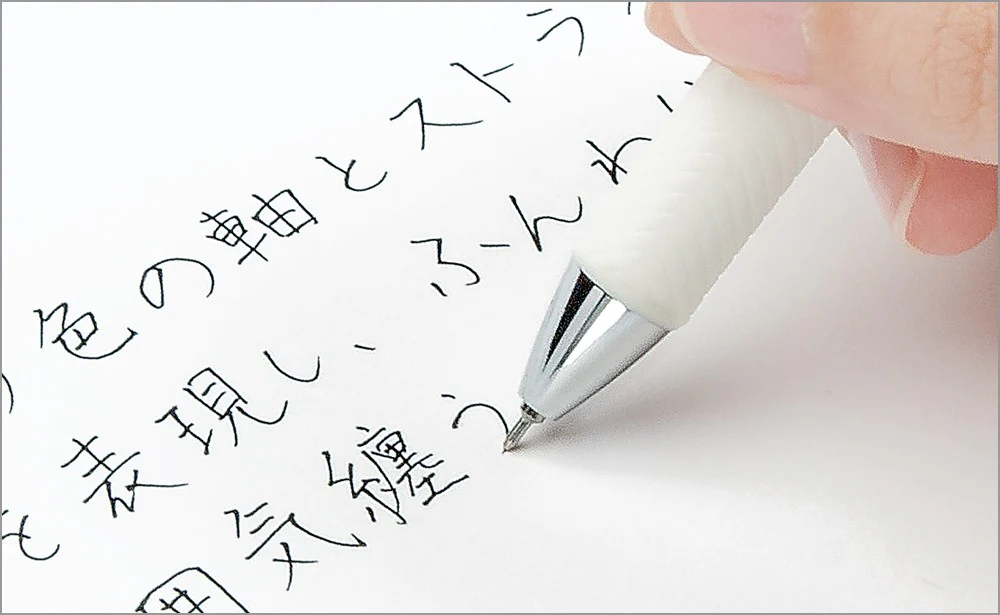 色の軸とストラ
を表現し、ふんわ
囲気纏う